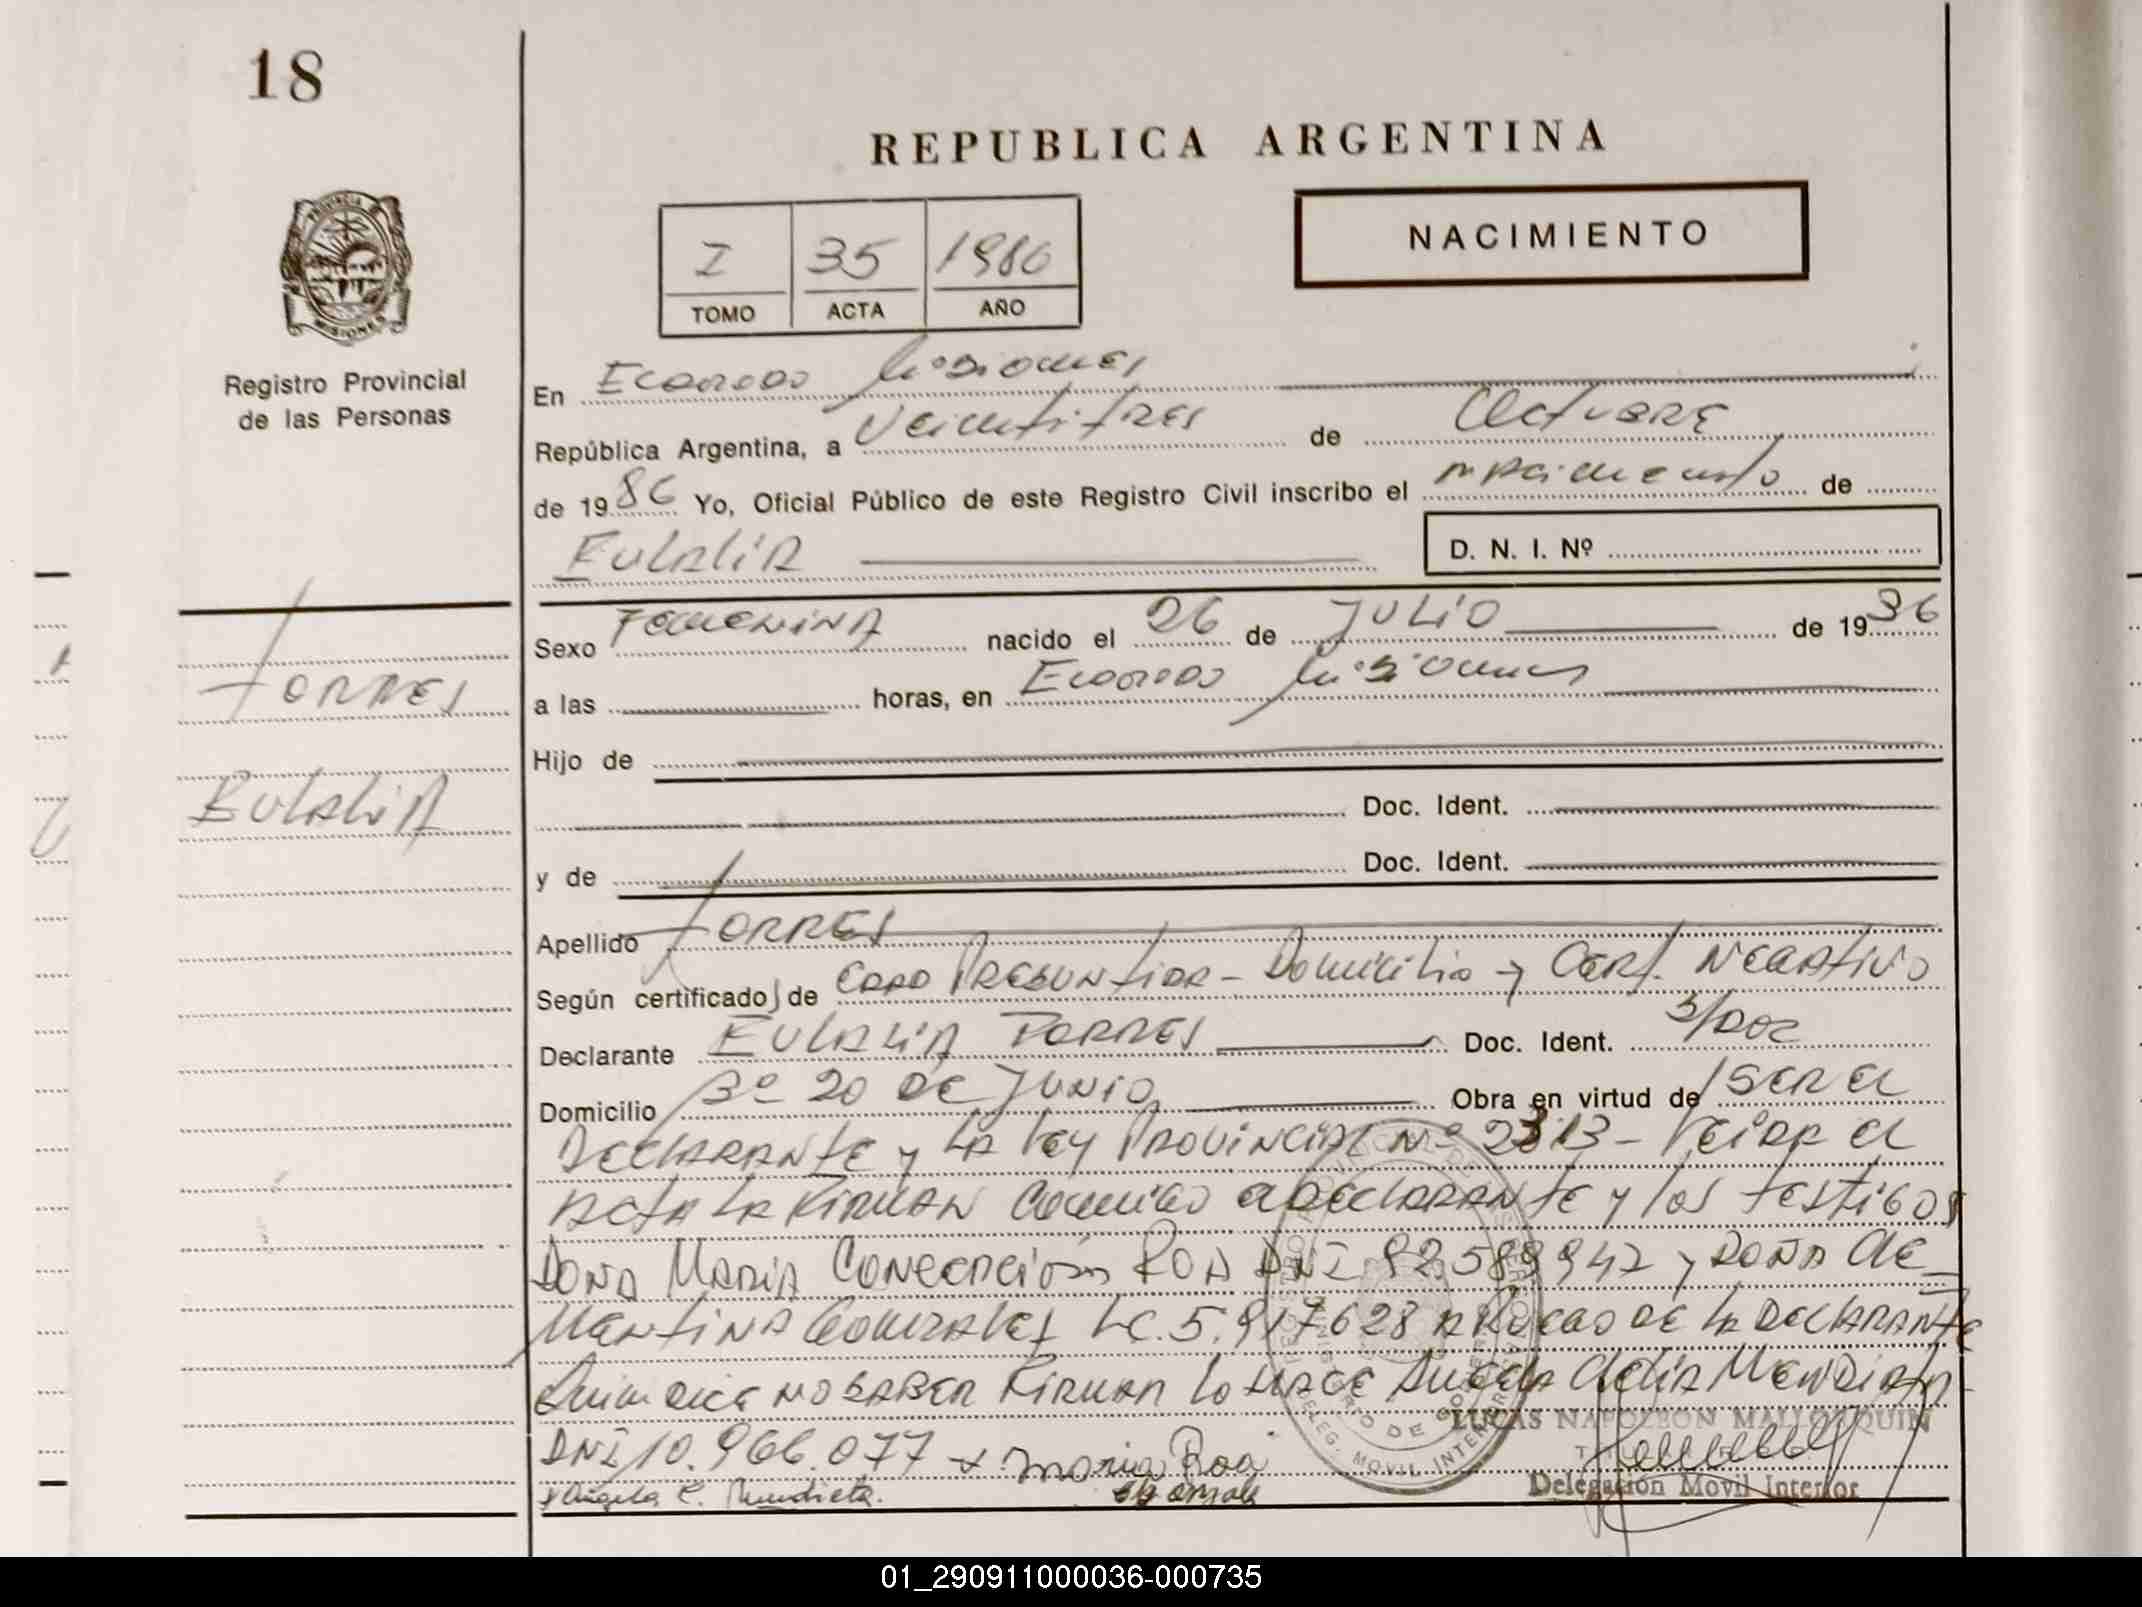 18
REPUBLICA ARGENTINA
NACIMIENTO
I 35 1986
TOMO ACTA AÑO
PROVINCIA
MISIONES
Registro Provincial
de las Personas
En Eldorado Misiones
República Argentina, a Veintitres de Octubre
de 1986 Yo, Oficial Público de este Registro Civil inscribo el nacimiento de
Eulalia
D. N. I. Nº
Sexo Femenina nacido el 26 de Julio de 1936
a las horas, en Eldorado Misiones
TORRES
Eulalia
Hijo de
Doc. Ident.
y de Doc. Ident.
Apellido Torres
Según certificado de Edad Presuntiva - Domicilio y Cert. Negativo
Declarante Eulalia Torres Doc. Ident. s/doc
Domicilio Bº 20 de Junio Obra en virtud de ser el
Declarante y la Ley Provincial Nº 2313 - Leida el
Acta la Firman Conmigo el Declarante y los testigos
Doña Maria Concepción Roa DNI 92.589947 y Doña Cle-
mentina Gonzalez LC. 5.917628 a Ruego de la Declarante
Quien dice no saber Firmar lo hace Angela Mendieta
DNI 10.966.077 Maria Roa
Angela C. Mendieta.
LUCAS NAPOLEON MALLORQUIN
Delegación Movil Interior
MINISTERIO DE GOBIERNO
DELEG. MOVIL INTERIOR
01_290911000036-000735